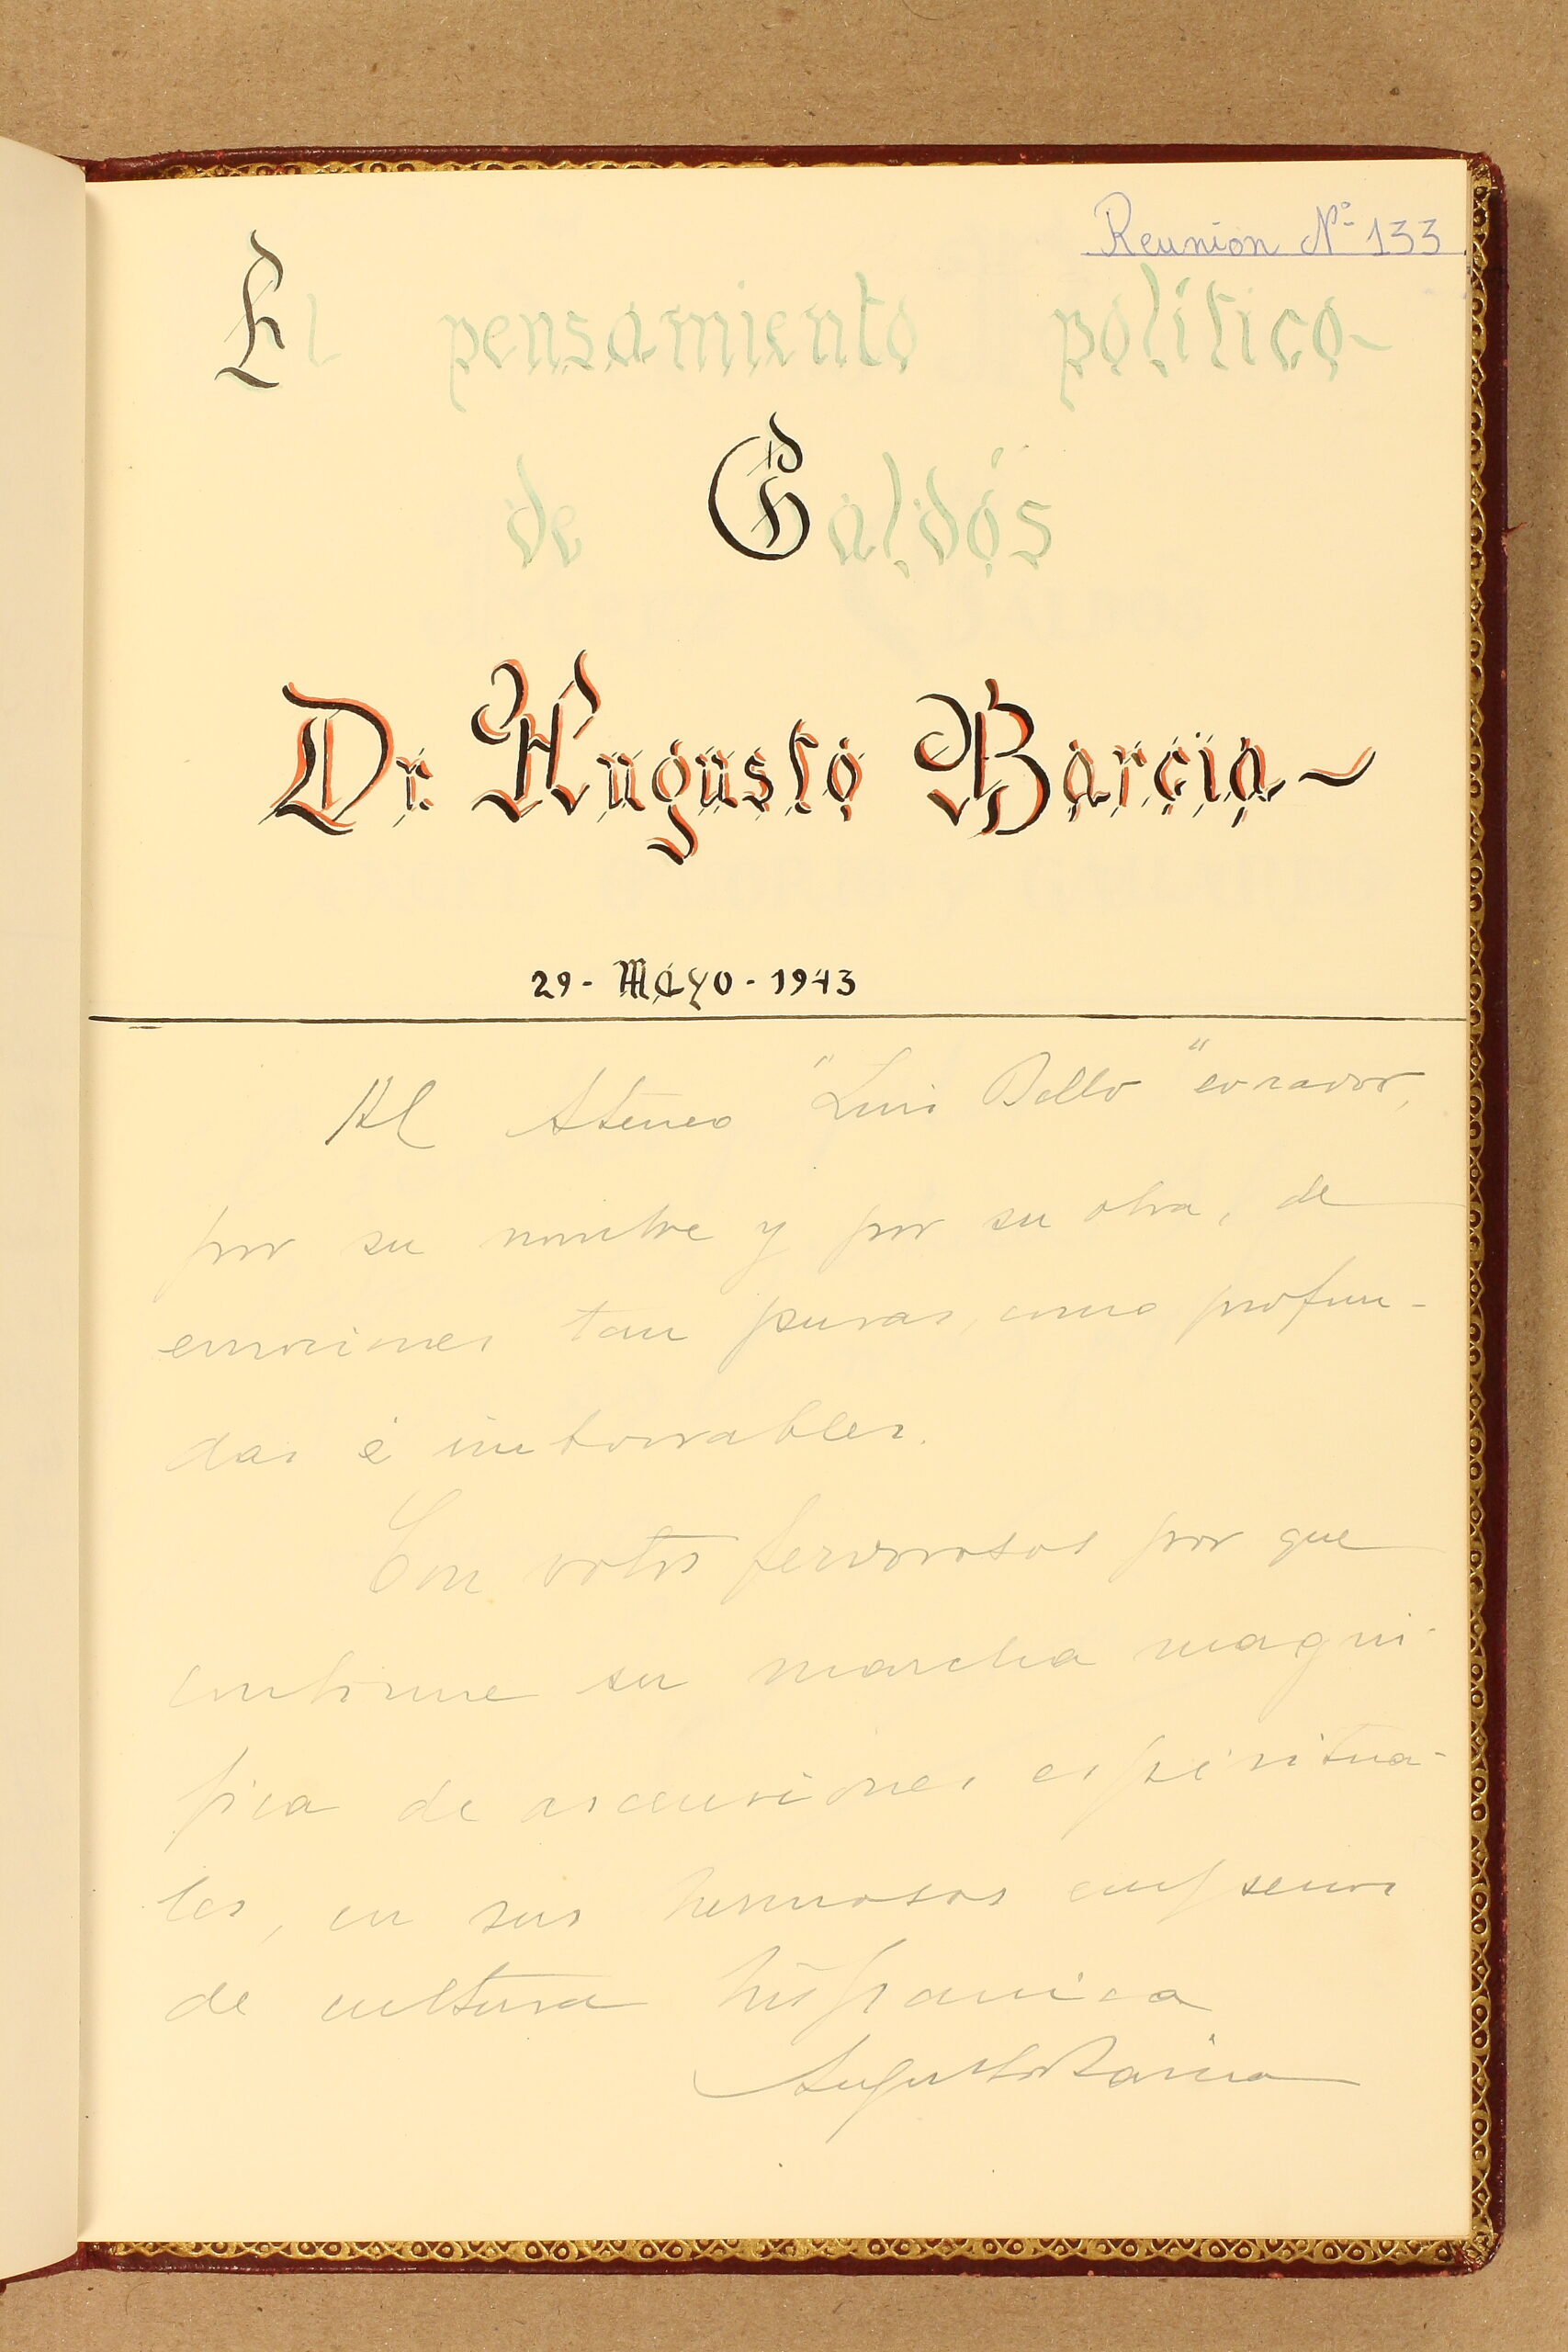 Reunion Nº 133
El pensamiento político-
de Galdós
Dr. Augusto Barcia-
29- Mayo - 1943
Al Ateneo "Luis Bello" evocador,
por su nombre y por su obra, de
emociones tan puras, como profun-
das é imborrables.
Con votos fervorosos por que
continue su marcha magni-
fica de ascensiones espiritua-
les, en sus hermosos empeños
de cultura hispanica
Augusto Barcia